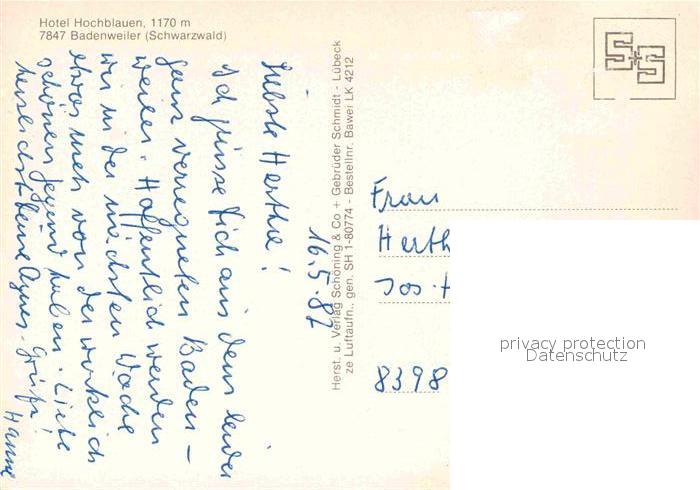 Hotel Hochblauen, 1170 m
7847 Badenweiler (Schwarzwald)
S+S
16.5.82
Liebste Herthe!
Ich grüsse Dich aus dem leider
ganz verregneten Baden-
weiler. Hoffentlich werden
wir in der nächsten Woche
etwas mehr von der wirklich
schönen Gegend haben. Liebe
herzlichst Deine Agnes. Grüße!
Hanne
Herst. u. Verlag Schöning & Co + Gebrüder Schmidt - Lübeck
ze Luftaufn., gen. SH 1-80774 - Bestellnr. Bawei LK 4212
Frau
Herth
Jos. H
8398
privacy protection
Datenschutz